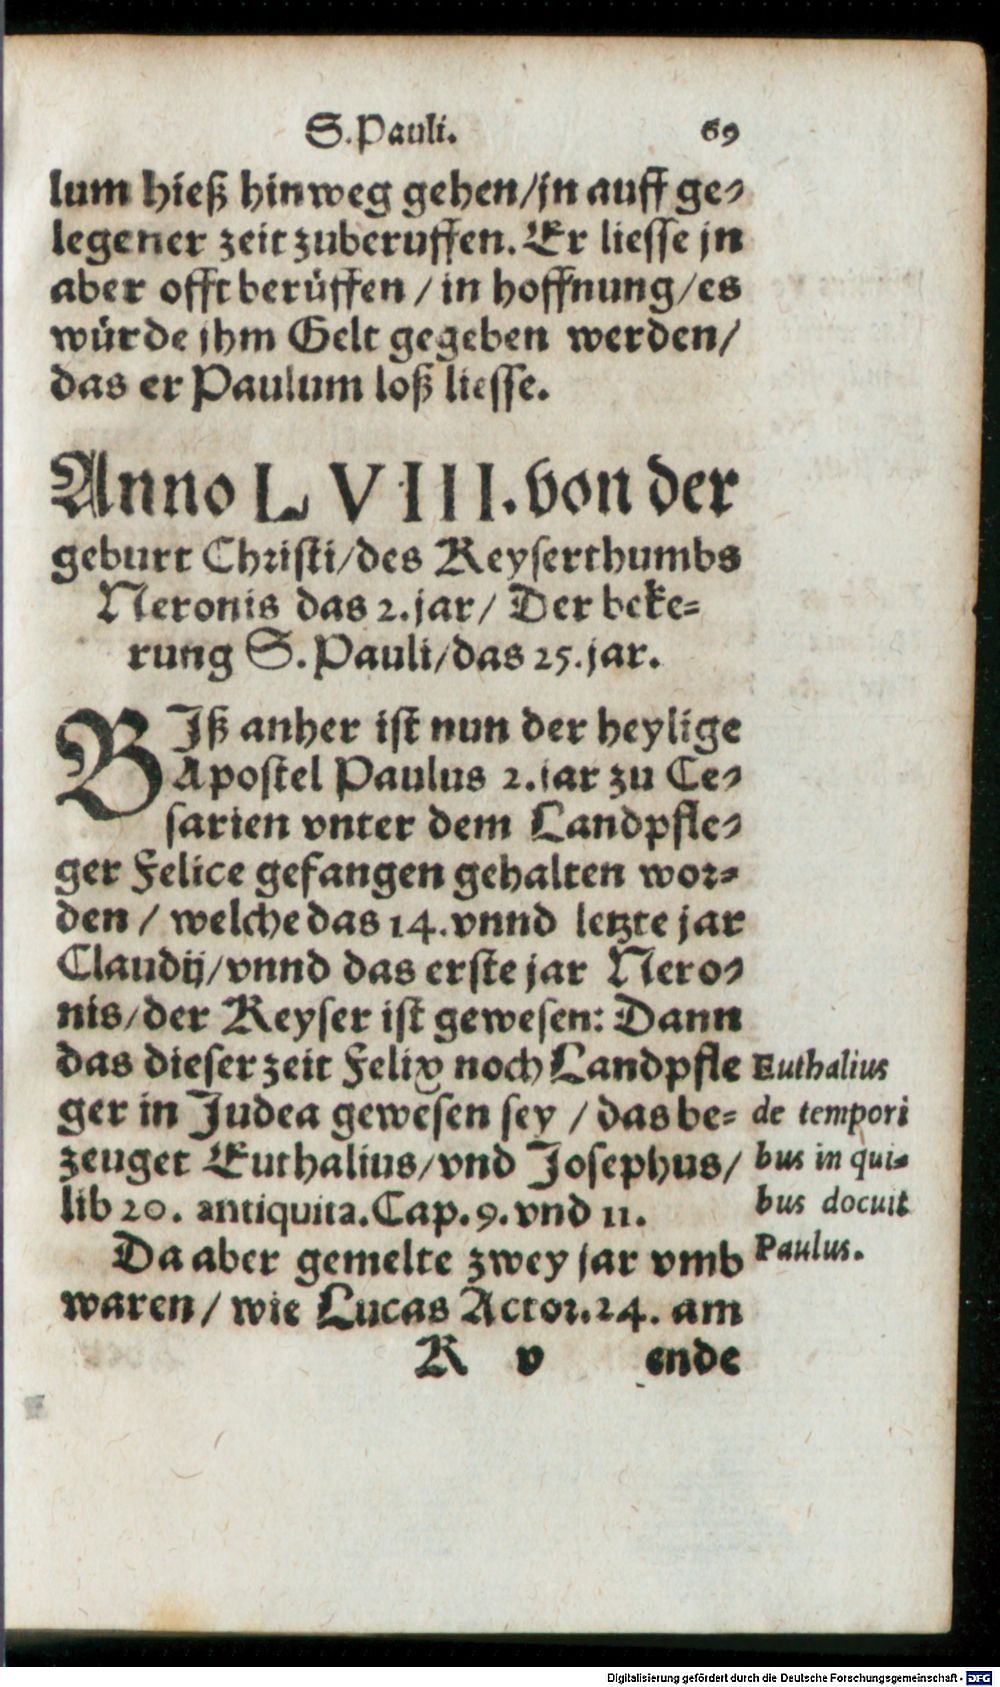 S. Pauli. 69
lum hieß hinweg gehen/jn auff ge-
legener zeit zuberuffen. Er liesse jn
aber offt berüffen / in hoffnung/es
würde jhm Gelt gegeben werden/
das er Paulum loß liesse.
Anno LVIII. von der
geburt Christi/des Keyserthumbs
Neronis das 2. jar/ Der beke-
rung S. Pauli/das 25. jar.
BIß anher ist nun der heylige
Apostel Paulus 2. jar zu Ce-
sarien vnter dem Landpfle-
ger Felice gefangen gehalten wor-
den / welche das 14. vnnd letzte jar
Claudij/vnnd das erste jar Nero-
nis/der Keyser ist gewesen: Dann
das dieser zeit Felix noch Landpfle
ger in Judea gewesen sey / das be-
zeuget Euthalius/vnd Josephus/
lib 20. antiquita. Cap. 9. vnd 11.
Da aber gemelte zwey jar vmb
waren / wie Lucas Actor. 24. am
K v ende
Euthalius
de tempori
bus in qui-
bus docuit
Paulus.
Digitalisierung gefördert durch die Deutsche Forschungsgemeinschaft - DFG